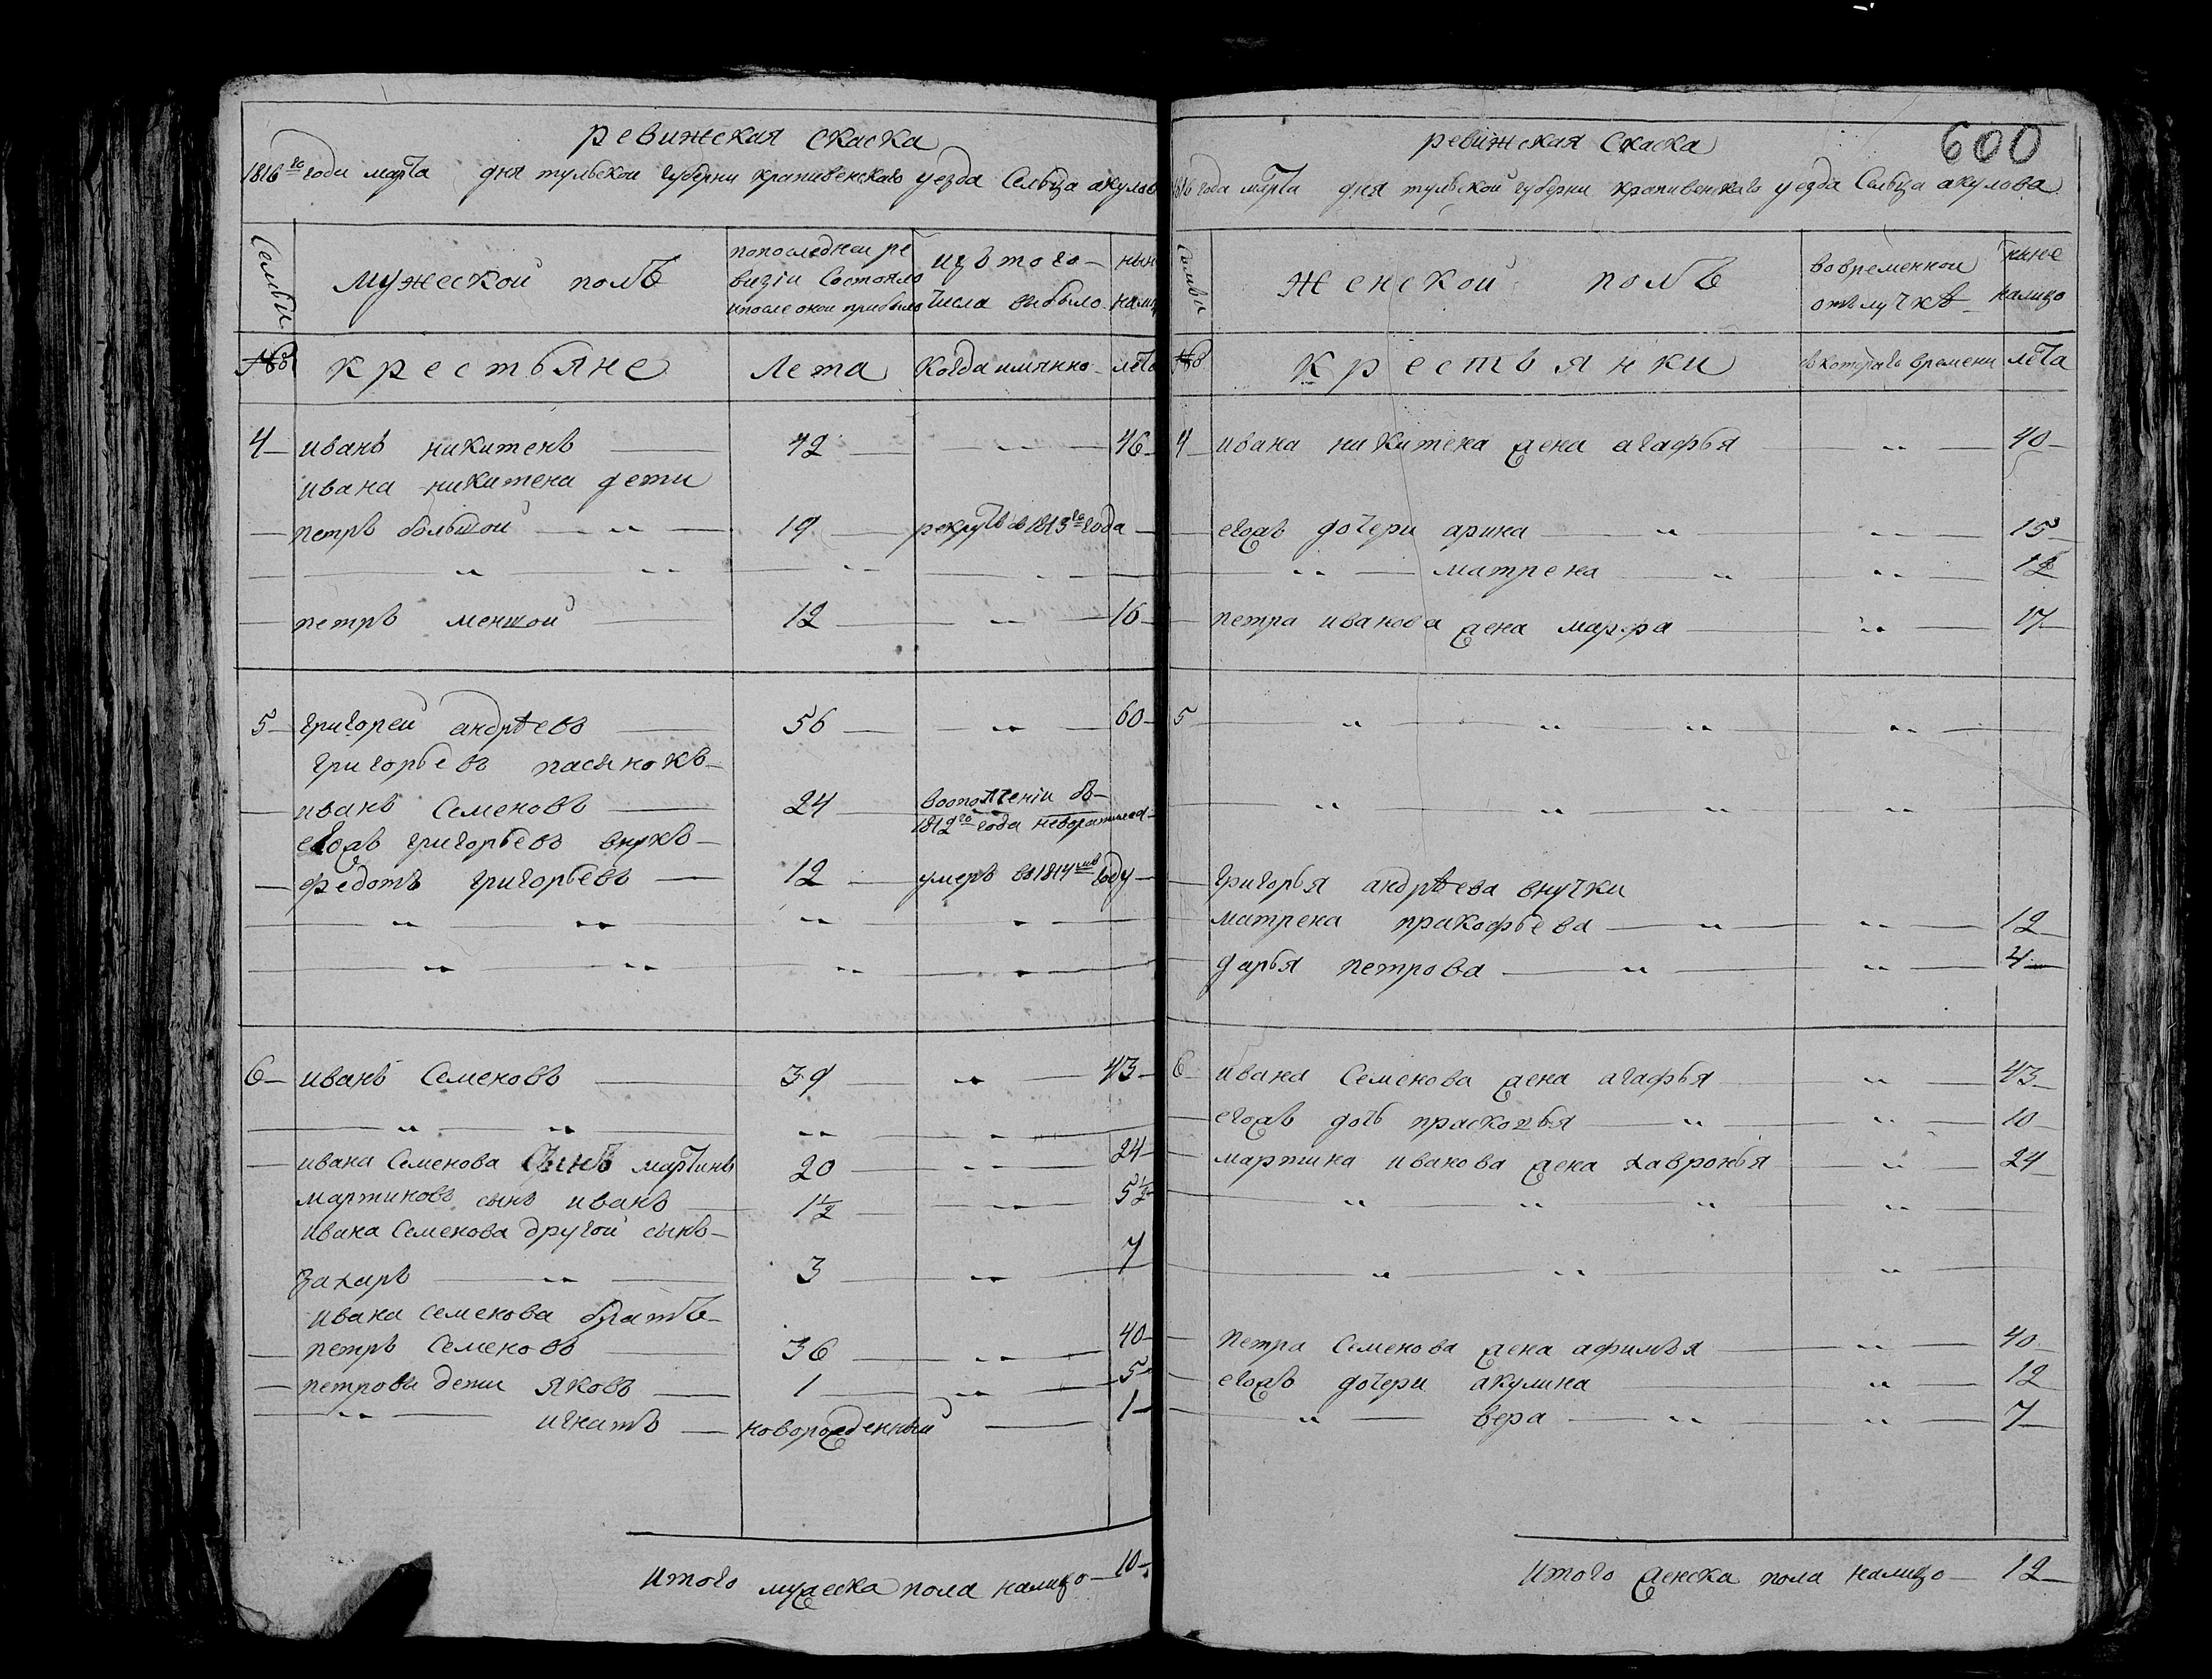 ревижская скаска
1816го года марта дня тульской губерни крапивенскаго уезда Сельца акулов
Семьи
мужеской полъ
попоследнеи ре
визiи Состояло
ипосле онои прибыло
изъ того
числа выбыло
нын
нали
№
крестьяне
Лета
Когда имянно
лета
4 иванъ никитенъ 42 46
ивана никитена дети
петръ большой 19 рекрутъ в 1813го года
петръ меншой 12 16
5 григорей андрѣевъ 56 60
григорьевъ пасынокъ
иванъ Семеновъ 24 воополчении въ
1812го года неворатился
егожъ григорьевъ внукъ
федотъ григорьевъ 12 умеръ в 1814мъ году
6 иванъ Семеновъ 39 43
ивана Семенова Сынъ мартинъ 20 24
мартиновъ сынъ иванъ 1½ 5½
ивана Семенова другой сынъ
захаръ 3 7
ивана семенова братъ
петръ Семеновъ 36 40
петровы дети яковъ 1 5
игнатъ новорожденный 1
Итого мужеска пола налицо 10
600
ревижская Скаска
1816 года марта дня тульской губерни крапивенскаго уезда Сельца акулова
Семьи
Женской полъ
вовременной
отълучкѣ
ныне
налицо
№
крестьянки
скотораго времени
лета
4 ивана никитена жена агафья 40
егожъ дочери арина 15
матрена 12
петра иванова жена марфа 17
5
григорья андрѣева внучки
матрена пракофьева 12
дарья петрова 4
6 ивана Семенова жена агафья 43
егожъ дочь прасковья 10
мартина иванова жена хавронья 24
петра Семенова жена афимья 40
егожъ дочери акулина 12
вера 7
Итого женска пола налицо 12